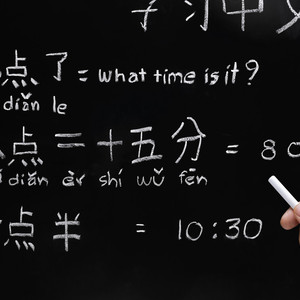 学习中文
点了 = what time is it?
diǎn le
点二十五分 = 8
diǎn èr shí wǔ fēn
点半 = 10:30